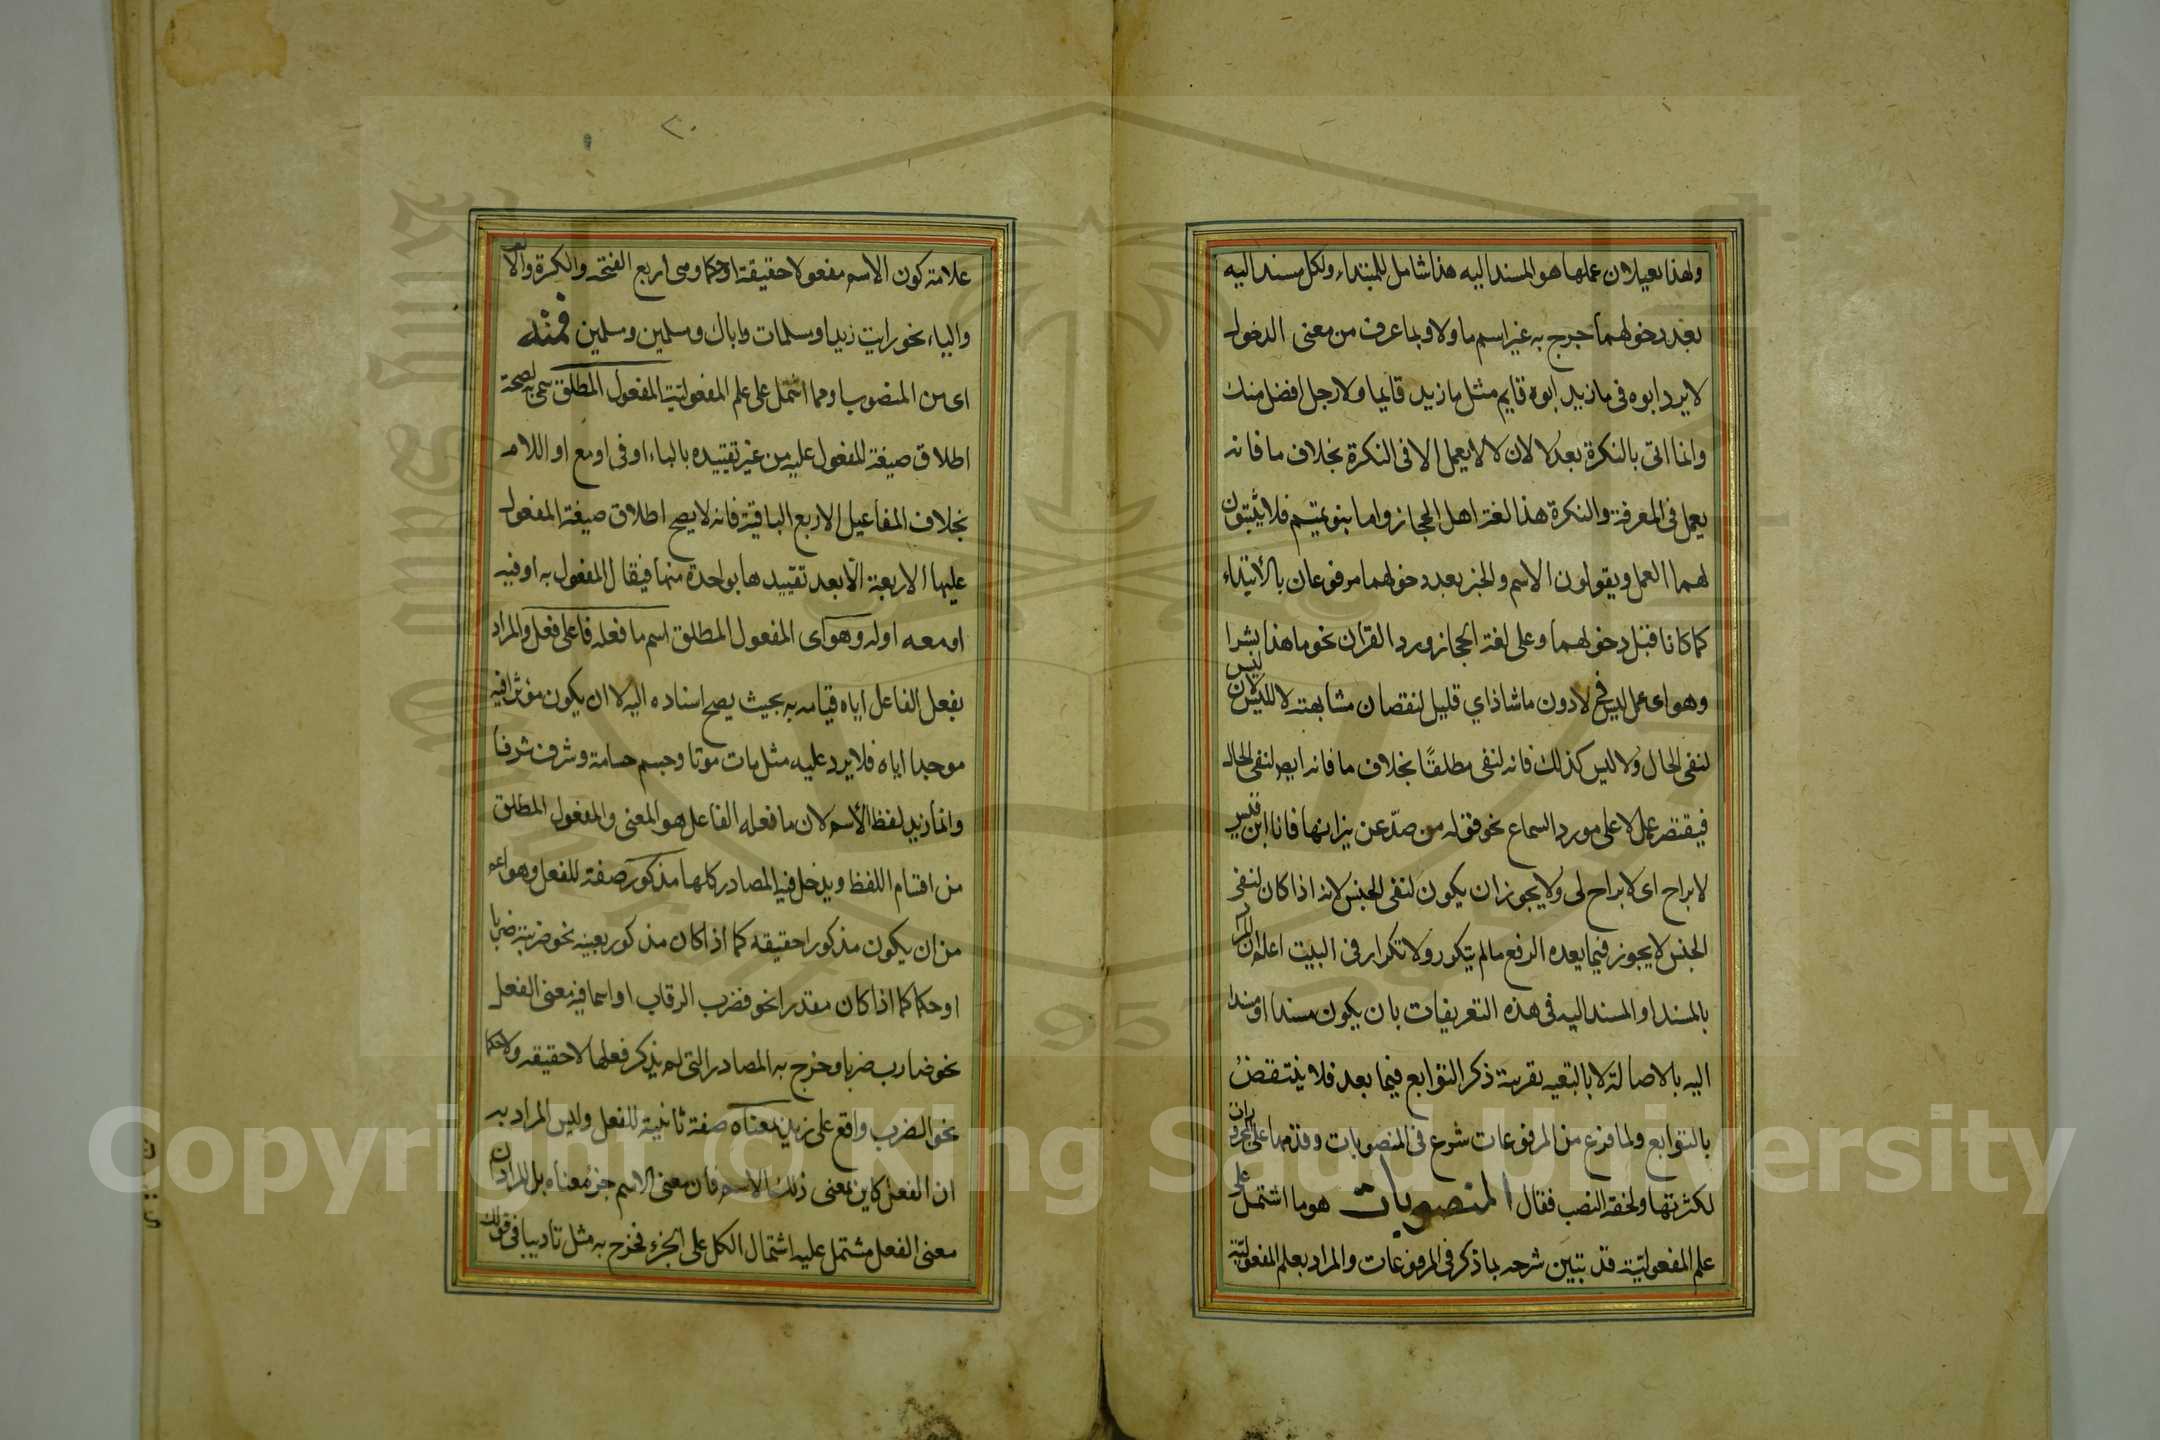 ولهذا بعيد لان عملها هو المسند اليه هذا شامل للمبتداء ولكل مسند اليه
بعد دخولهما خرج به غير اسم ما ولا وبما عرفت من معنى الدخول
لا يرد ابوه فى ما زيد ابوه قايم مثل ما زيد قايما ولا رجل افضل منك
وانما اتى بالنكرة بعد لا لان لا لا يعمل الا فى النكرة بخلاف ما فانه
يعمل فى المعرفة والنكرة هذا لغة اهل الحجاز واما بنو تميم فلا يثبتون
لهما العمل ويقولون الاسم والخبر بعد دخولهما مرفوعان بالأبتداء
كما كانا قبل دخولهما وعلى لغة الحجاز ورد القران نحو ما هذا بشرا
وهو اى عمل ليس فى لا دون ما شاذ اي قليل لنقصان مشابهة لا لليس لان ليس
لنفى الحال ولا ليس كذلك فانه لنفى مطلقًا بخلاف ما فانه ايض لنفى الحال
فيقتصر عمل لا على مورد السماع نحو قوله من صدّ عن نيرانها فانا ابن قيس
لا براح اى لا براح لى ولا يجوز ان يكون لنفى الجنس لانه اذا كان لنفى
الجنس لا يجوز فيما بعده الرفع ما لم يتكرر ولا تكرار فى البيت اعلم ان المراد
بالمسند او المسند اليه فى هذه التعريفات بان يكون مسندا او مسندا
اليه بالاصالة لا بالتبعيه بقرينة ذكر التوابع فيما بعد فلا ينتقضُ
بالتوابع ولما فرغ من المرفوعات شرع فى المنصوبات وقدمها على المجرورات
لكثرتها ولخفة النصب فقال المنصوبات هو ما اشتمل على
علم المفعوليّة قد تبين شرحه بما ذكر فى المرفوعات والمراد بعلم المفعوليّة
٢٠
علامة كون الاسم مفعولا حقيقة او حكما وهى اربع الفتحه والكسرة والالف
والياء نحو رايت زيدا ومسلمات واباك ومسلمين ومسلمين فمنه
اى من المنصوب او مما اشتمل على علم المفعولية المفعول المطلق سمى به لصحة
اطلاق صيغة المفعول عليه من غير تقييده بالباء او فى او مع او اللام
بخلاف المفاعيل الاربع الباقية فانه لا يصح اطلاق صيغة المفعول
عليها الاربعة الّا بعد تقييدها بواحدة منها فيقال المفعول به او فيه
او معه او له وهو اى المفعول المطلق اسم ما فعله فاعل فعل والمراد
بفعل الفاعل اياه قيامه به بحيث يصح اسناده اليه لا ان يكون مؤثرا فيه
موجدا اياه فلا يرد عليه مثل مات موتا وجسم جسامة وشرف شرفا
وانما زيد لفظ الأسم لان ما فعله الفاعل هو المعنى والمفعول المطلق
من اقسام اللفظ ويدخل فيه المصادر كلها مذكور صفة للفعل وهو اعم
من ان يكون مذكورا حقيقه كما اذا كان مذكور بعينه نحو ضربته ضربا
او حكما كما اذا كان مقدرا نحو فضرب الرقاب او اسما فيه معنى الفعل
نحو ضارب ضربا وخرج به المصادر التى لم يذكر فعلها لا حقيقه ولا حكما
نحو الضرب واقع على زيد بمعناه صفة ثانية للفعل وليس المراد به
ان الفعل كاين بمعنى ذلك الاسم فان معنى الاسم جزءُ معناه بل المراد ان
معنى الفعل مشتمل عليه اشتمال الكل على الجزء فخرج به مثل تاديبا فى قولك
Copyright © King Saud University
1957